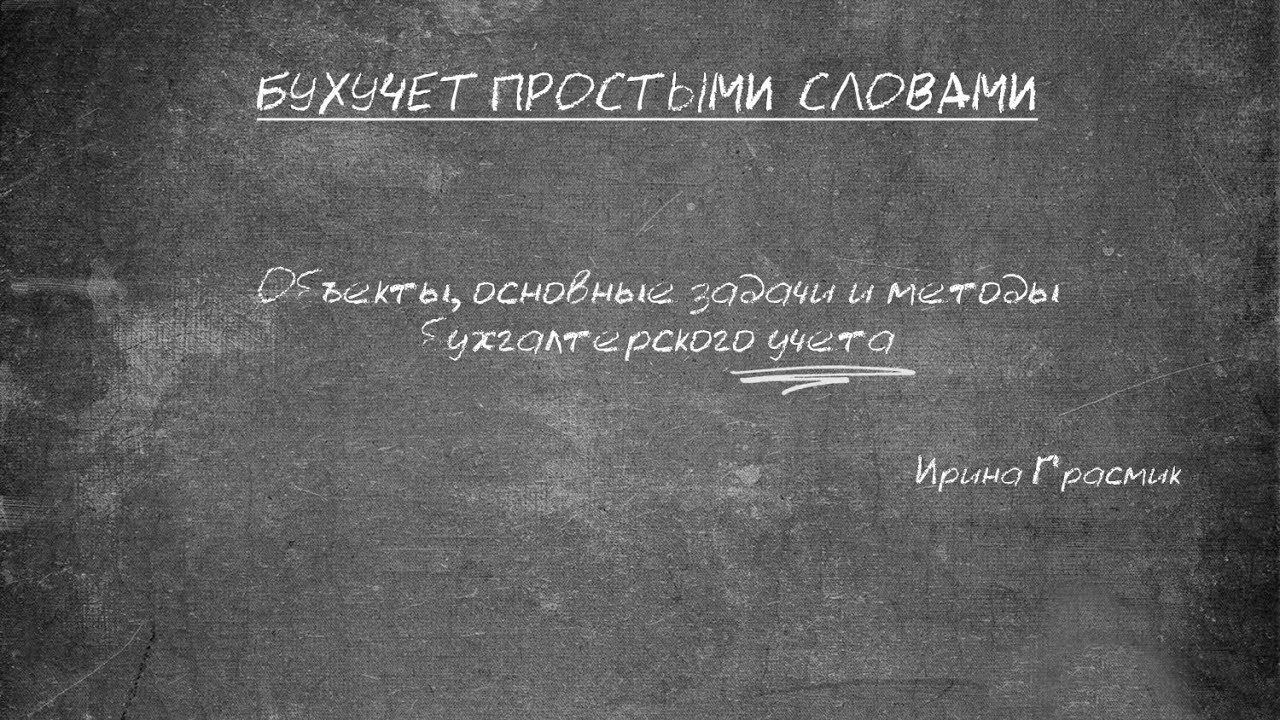 БУХУЧЕТ ПРОСТЫМИ СЛОВАМИ
Объекты, основные задачи и методы
бухгалтерского учета
Ирина Грасмик